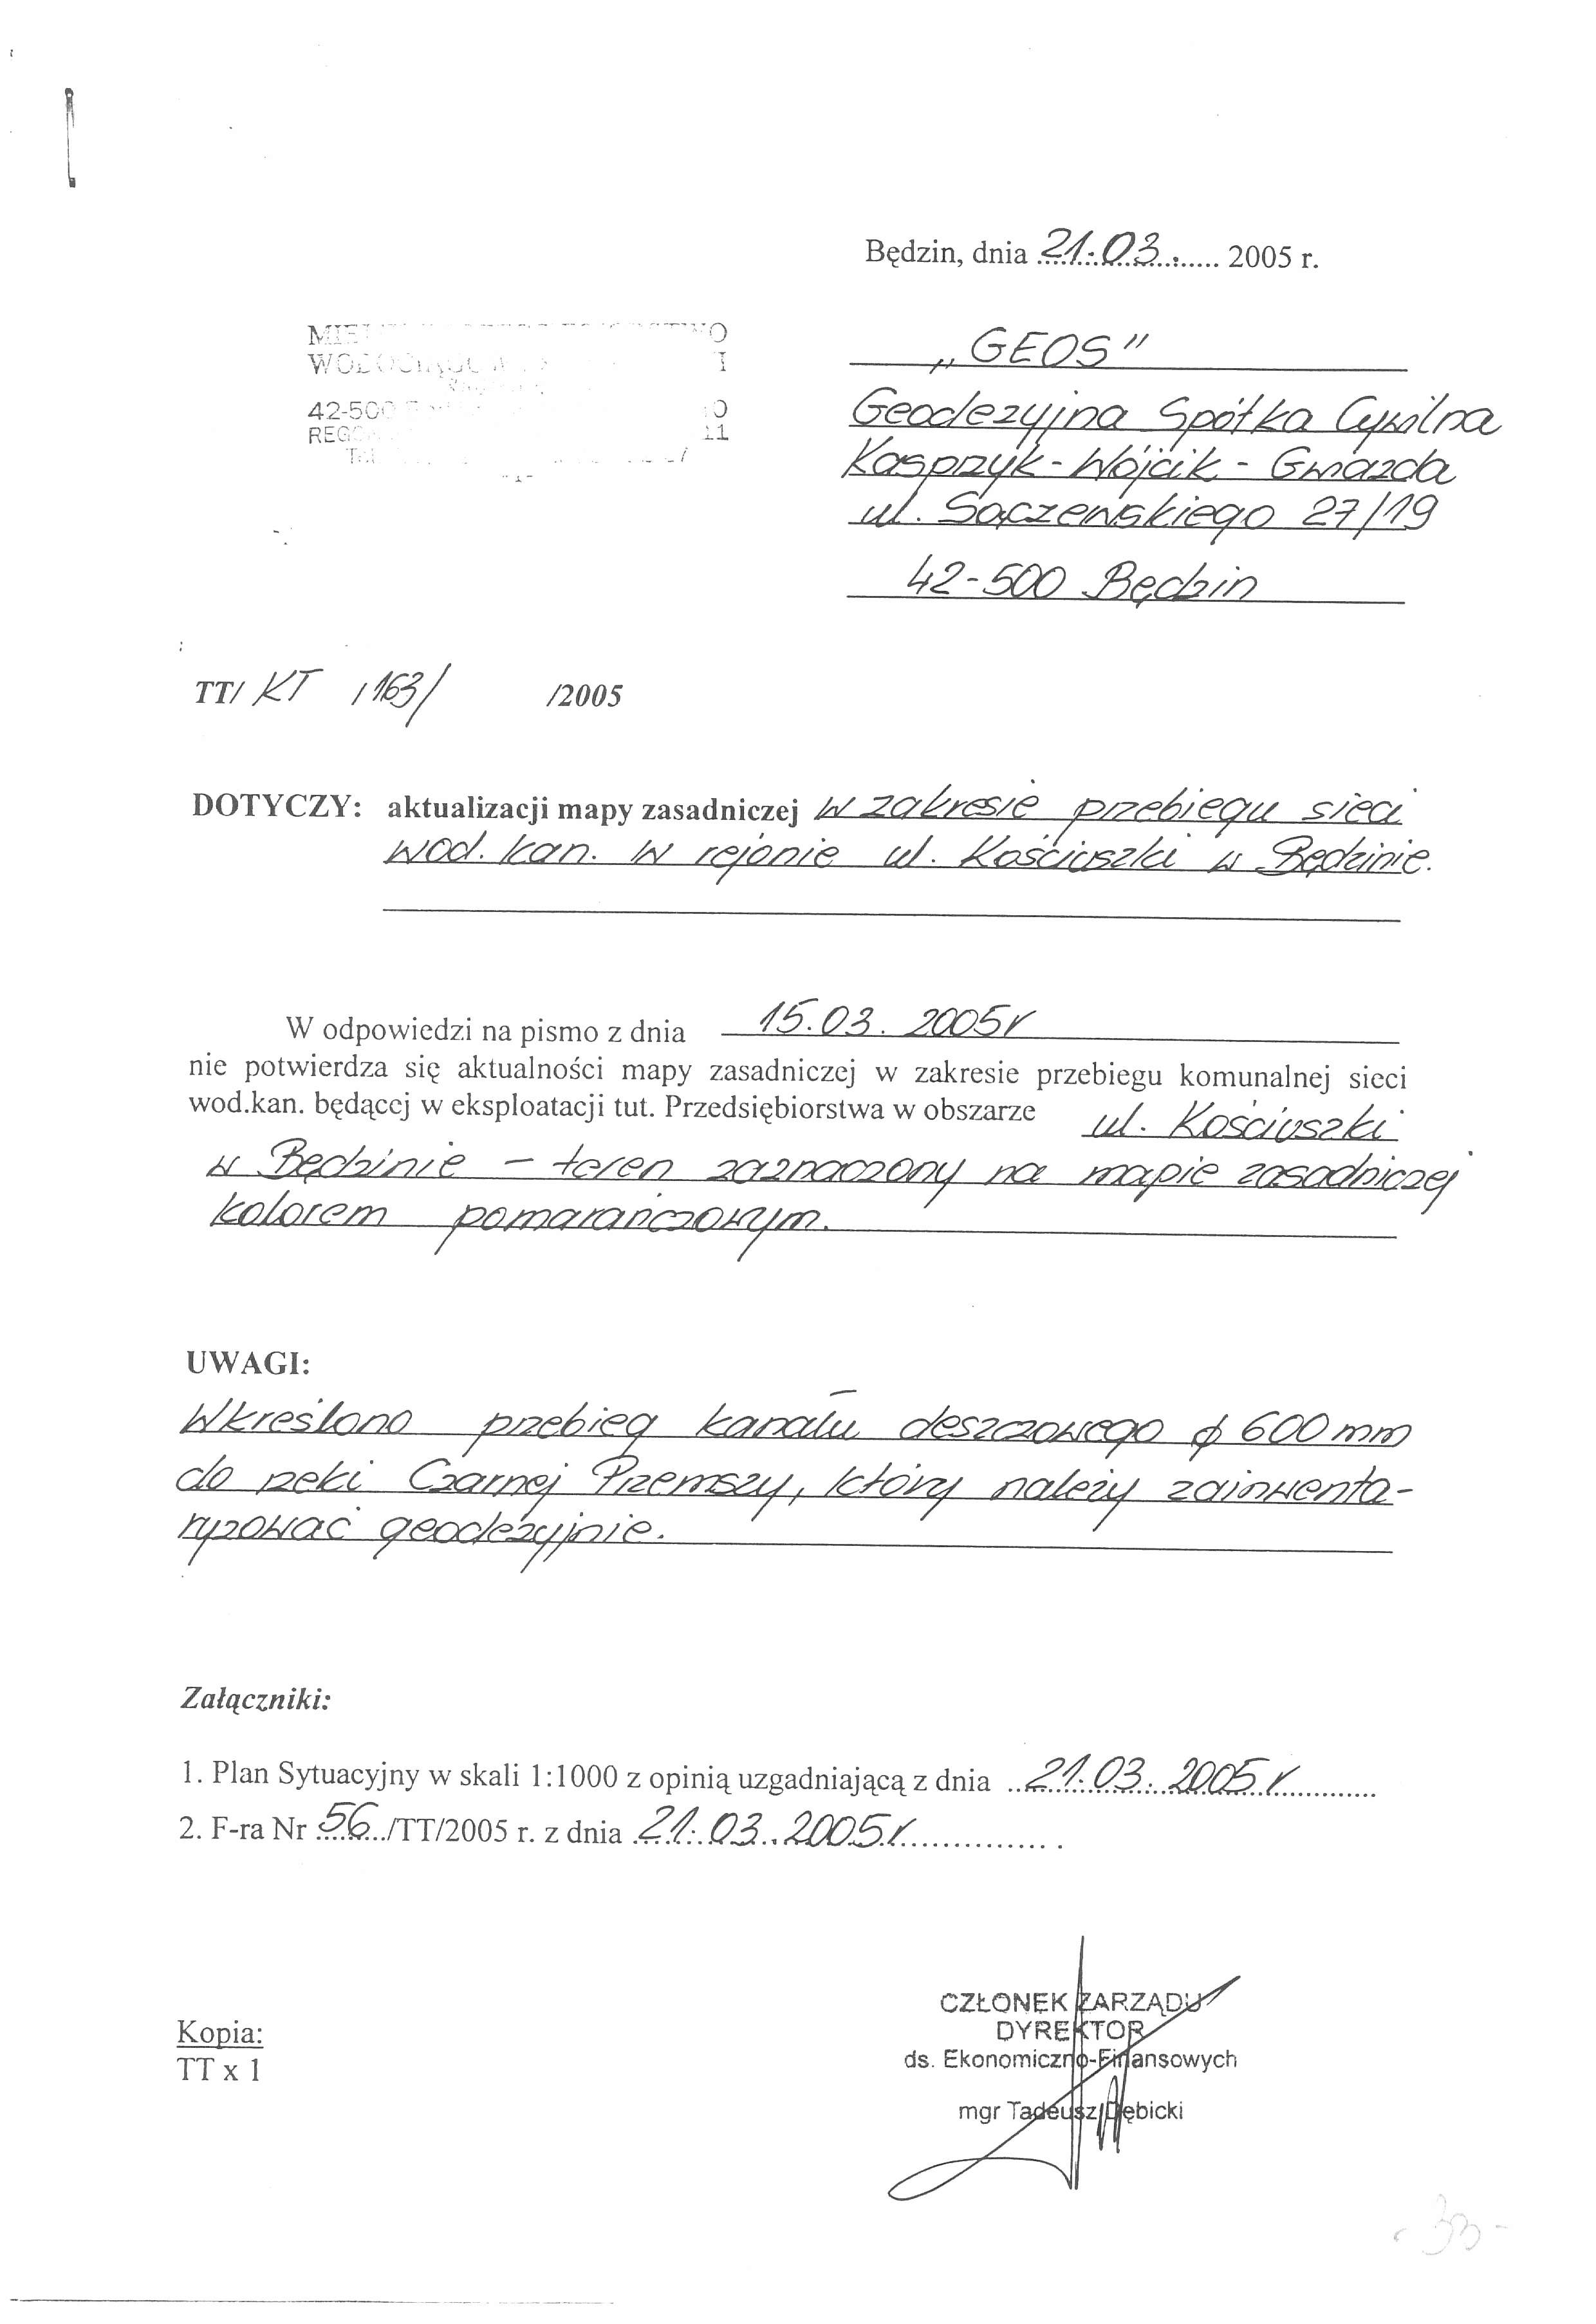 Będzin, dnia 21.03. 2005 r.
42-500
„GEOS"
Geodezyjna Spółka Cywilna
Kasprzyk - Wójcik - Gwiazda
ul. Sączewskiego 27/19
42-500 Będzin
TT/ KT /163/ /2005
DOTYCZY: aktualizacji mapy zasadniczej w zakresie przebiegu sieci
wod. kan. w rejonie ul. Kościuszki w Będzinie.
W odpowiedzi na pismo z dnia 15.03. 2005r
nie potwierdza się aktualności mapy zasadniczej w zakresie przebiegu komunalnej sieci
wod.kan. będącej w eksploatacji tut. Przedsiębiorstwa w obszarze ul. Kościuszki
w Będzinie – teren zaznaczony na mapie zasadniczej
kolorem pomarańczowym.
UWAGI:
Wkreślono przebieg kanału deszczowego ϕ 600 mm
do rzeki Czarnej Przemszy, który należy zainwenta-
ryzować geodezyjnie.
Załączniki:
1. Plan Sytuacyjny w skali 1:1000 z opinią uzgadniającą z dnia 21.03. 2005 r
2. F-ra Nr 56/TT/2005 r. z dnia 21.03.2005r.
Kopia:
TT x 1
CZŁONEK ZARZĄDU
DYREKTOR
ds. Ekonomiczno-Finansowych
mgr Tadeusz Dębicki